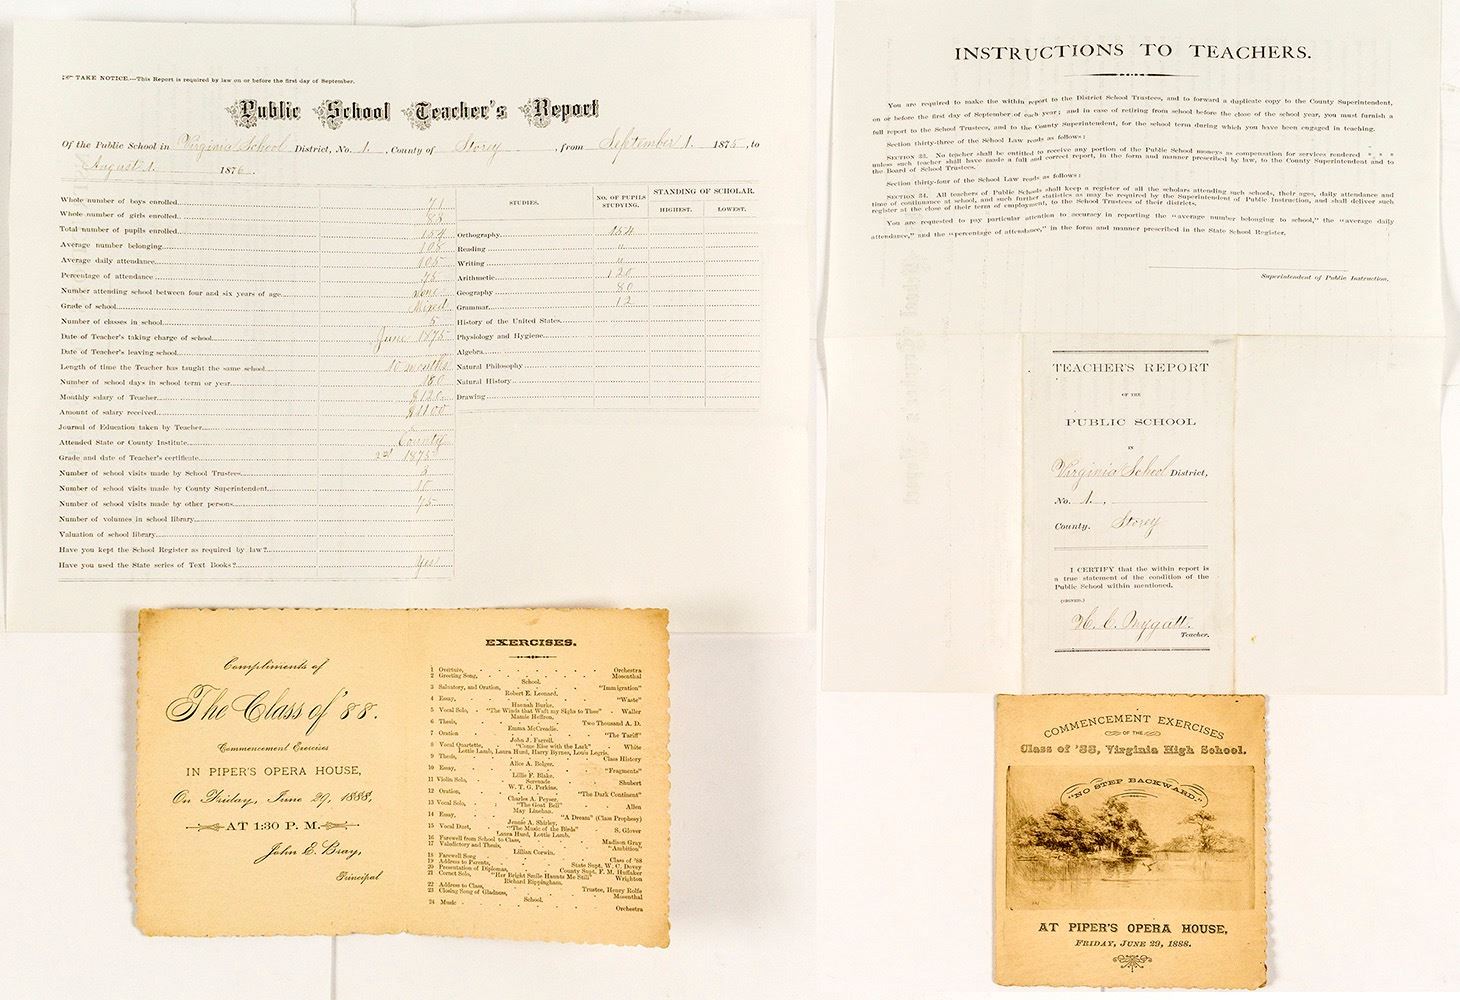 TAKE NOTICE.—This Report is required by law on or before the first day of September.
Public School Teacher's Report
Of the Public School in Virginia School District, No. 1., County of Storey, from September 1. 1875, to
August 1. 1876.
Whole number of boys enrolled 71
Whole number of girls enrolled 83
Total number of pupils enrolled 154
Average number belonging 108
Average daily attendance 105
Percentage of attendance 75
Number attending school between four and six years of age none
Grade of school Mixed
Number of classes in school 5
Date of Teacher's taking charge of school June 1875
Date of Teacher's leaving school
Length of time the Teacher has taught the same school 10 months
Number of school days in school term or year
Monthly salary of Teacher $120
Amount of salary received $1100
Journal of Education taken by Teacher
Attended State or County Institute County
Grade and date of Teacher's certificate 2nd 1875
Number of school visits made by School Trustees 3
Number of school visits made by County Superintendent 10
Number of school visits made by other persons 75
Number of volumes in school library
Valuation of school library
Have you kept the School Register as required by law?
Have you used the State series of Text Books? Yes
STUDIES. NO. OF PUPILS STUDYING. STANDING OF SCHOLAR.
HIGHEST. LOWEST.
Orthography 154
Reading "
Writing "
Arithmetic 120
Geography 80
Grammar 12
History of the United States
Physiology and Hygiene
Algebra
Natural Philosophy
Natural History
Drawing
INSTRUCTIONS TO TEACHERS.
You are required to make the within report to the District School Trustees, and to forward a duplicate copy to the County Superintendent,
on or before the first day of September of each year; and in case of retiring from school before the close of the school year, you must furnish a
full report to the School Trustees, and to the County Superintendent, for the school term during which you have been engaged in teaching.
Section thirty-three of the School Law reads as follows:
SECTION 33. No teacher shall be entitled to receive any portion of the Public School moneys as compensation for services rendered * * *
unless such teacher shall have made a full and correct report, in the form and manner prescribed by law, to the County Superintendent and to
the Board of School Trustees.
Section thirty-four of the School Law reads as follows:
SECTION 34. All teachers of Public Schools shall keep a register of all the scholars attending such schools, their ages, daily attendance and
time of continuance at school, and such further statistics as may be required by the Superintendent of Public Instruction, and shall deliver such
register at the close of their term of employment, to the School Trustees of their districts.
You are requested to pay particular attention to accuracy in reporting the "average number belonging to school," the "average daily
attendance," and the "percentage of attendance," in the form and manner prescribed in the State School Register.
Superintendent of Public Instruction.
TEACHER'S REPORT
OF THE
PUBLIC SCHOOL
IN
Virginia School District,
No. 1.,
County. Storey
I CERTIFY that the within report is
a true statement of the condition of the
Public School within mentioned.
(SIGNED.)
Teacher.
Compliments of
The Class of '88.
Commencement Exercises
IN PIPER'S OPERA HOUSE,
On Friday, June 29, 1888,
AT 1:30 P. M.
John E. Bray,
Principal
EXERCISES.
1 Overture, Orchestra
2 Greeting Song, Mosenthal
School.
3 Salutatory, and Oration, "Immigration"
Robert E. Leonard.
4 Essay, "Waste"
Hannah Burke.
5 Vocal Solo, "The Winds that Waft my Sighs to Thee" Waller
Mamie Heffron.
6 Thesis, Two Thousand A. D.
Emma McCreadie.
7 Oration "The Tariff"
John J. Farrell.
8 Vocal Quartette, "Come Rise with the Lark" White
Lottie Lamb, Laura Hurd, Harry Byrnes, Louis Legris.
9 Thesis, Class History
Alice A. Bolger.
10 Essay, "Fragments"
Lillie F. Blake.
11 Violin Solo, Serenade Shubert
W. T. G. Perkins.
12 Oration, "The Dark Continent"
Charles A. Peyser.
13 Vocal Solo, "The Goat Bell" Allen
May Linehan.
14 Essay, "A Dream" (Class Prophesy)
Jennie A. Shirley.
15 Vocal Duet, "The Music of the Birds" S. Glover
Laura Hurd, Lottie Lamb.
16 Farewell from School to Class, Madison Gray
17 Valedictory and Thesis, "Ambition"
Lillian Corwin.
18 Farewell Song Class of '88
19 Address to Parents, State Supt. W. C. Dovey
20 Presentation of Diplomas, County Supt. F. M. Huffaker
21 Cornet Solo, "Her Bright Smile Haunts Me Still" Wrighton
Richard Rippingham.
22 Address to Class, Trustee, Henry Rolfe
23 Closing Song of Gladness, Mosenthal
School.
24 Music Orchestra
COMMENCEMENT EXERCISES
OF THE
Class of '88, Virginia High School.
"NO STEP BACKWARD."
AT PIPER'S OPERA HOUSE,
FRIDAY, JUNE 29, 1888.